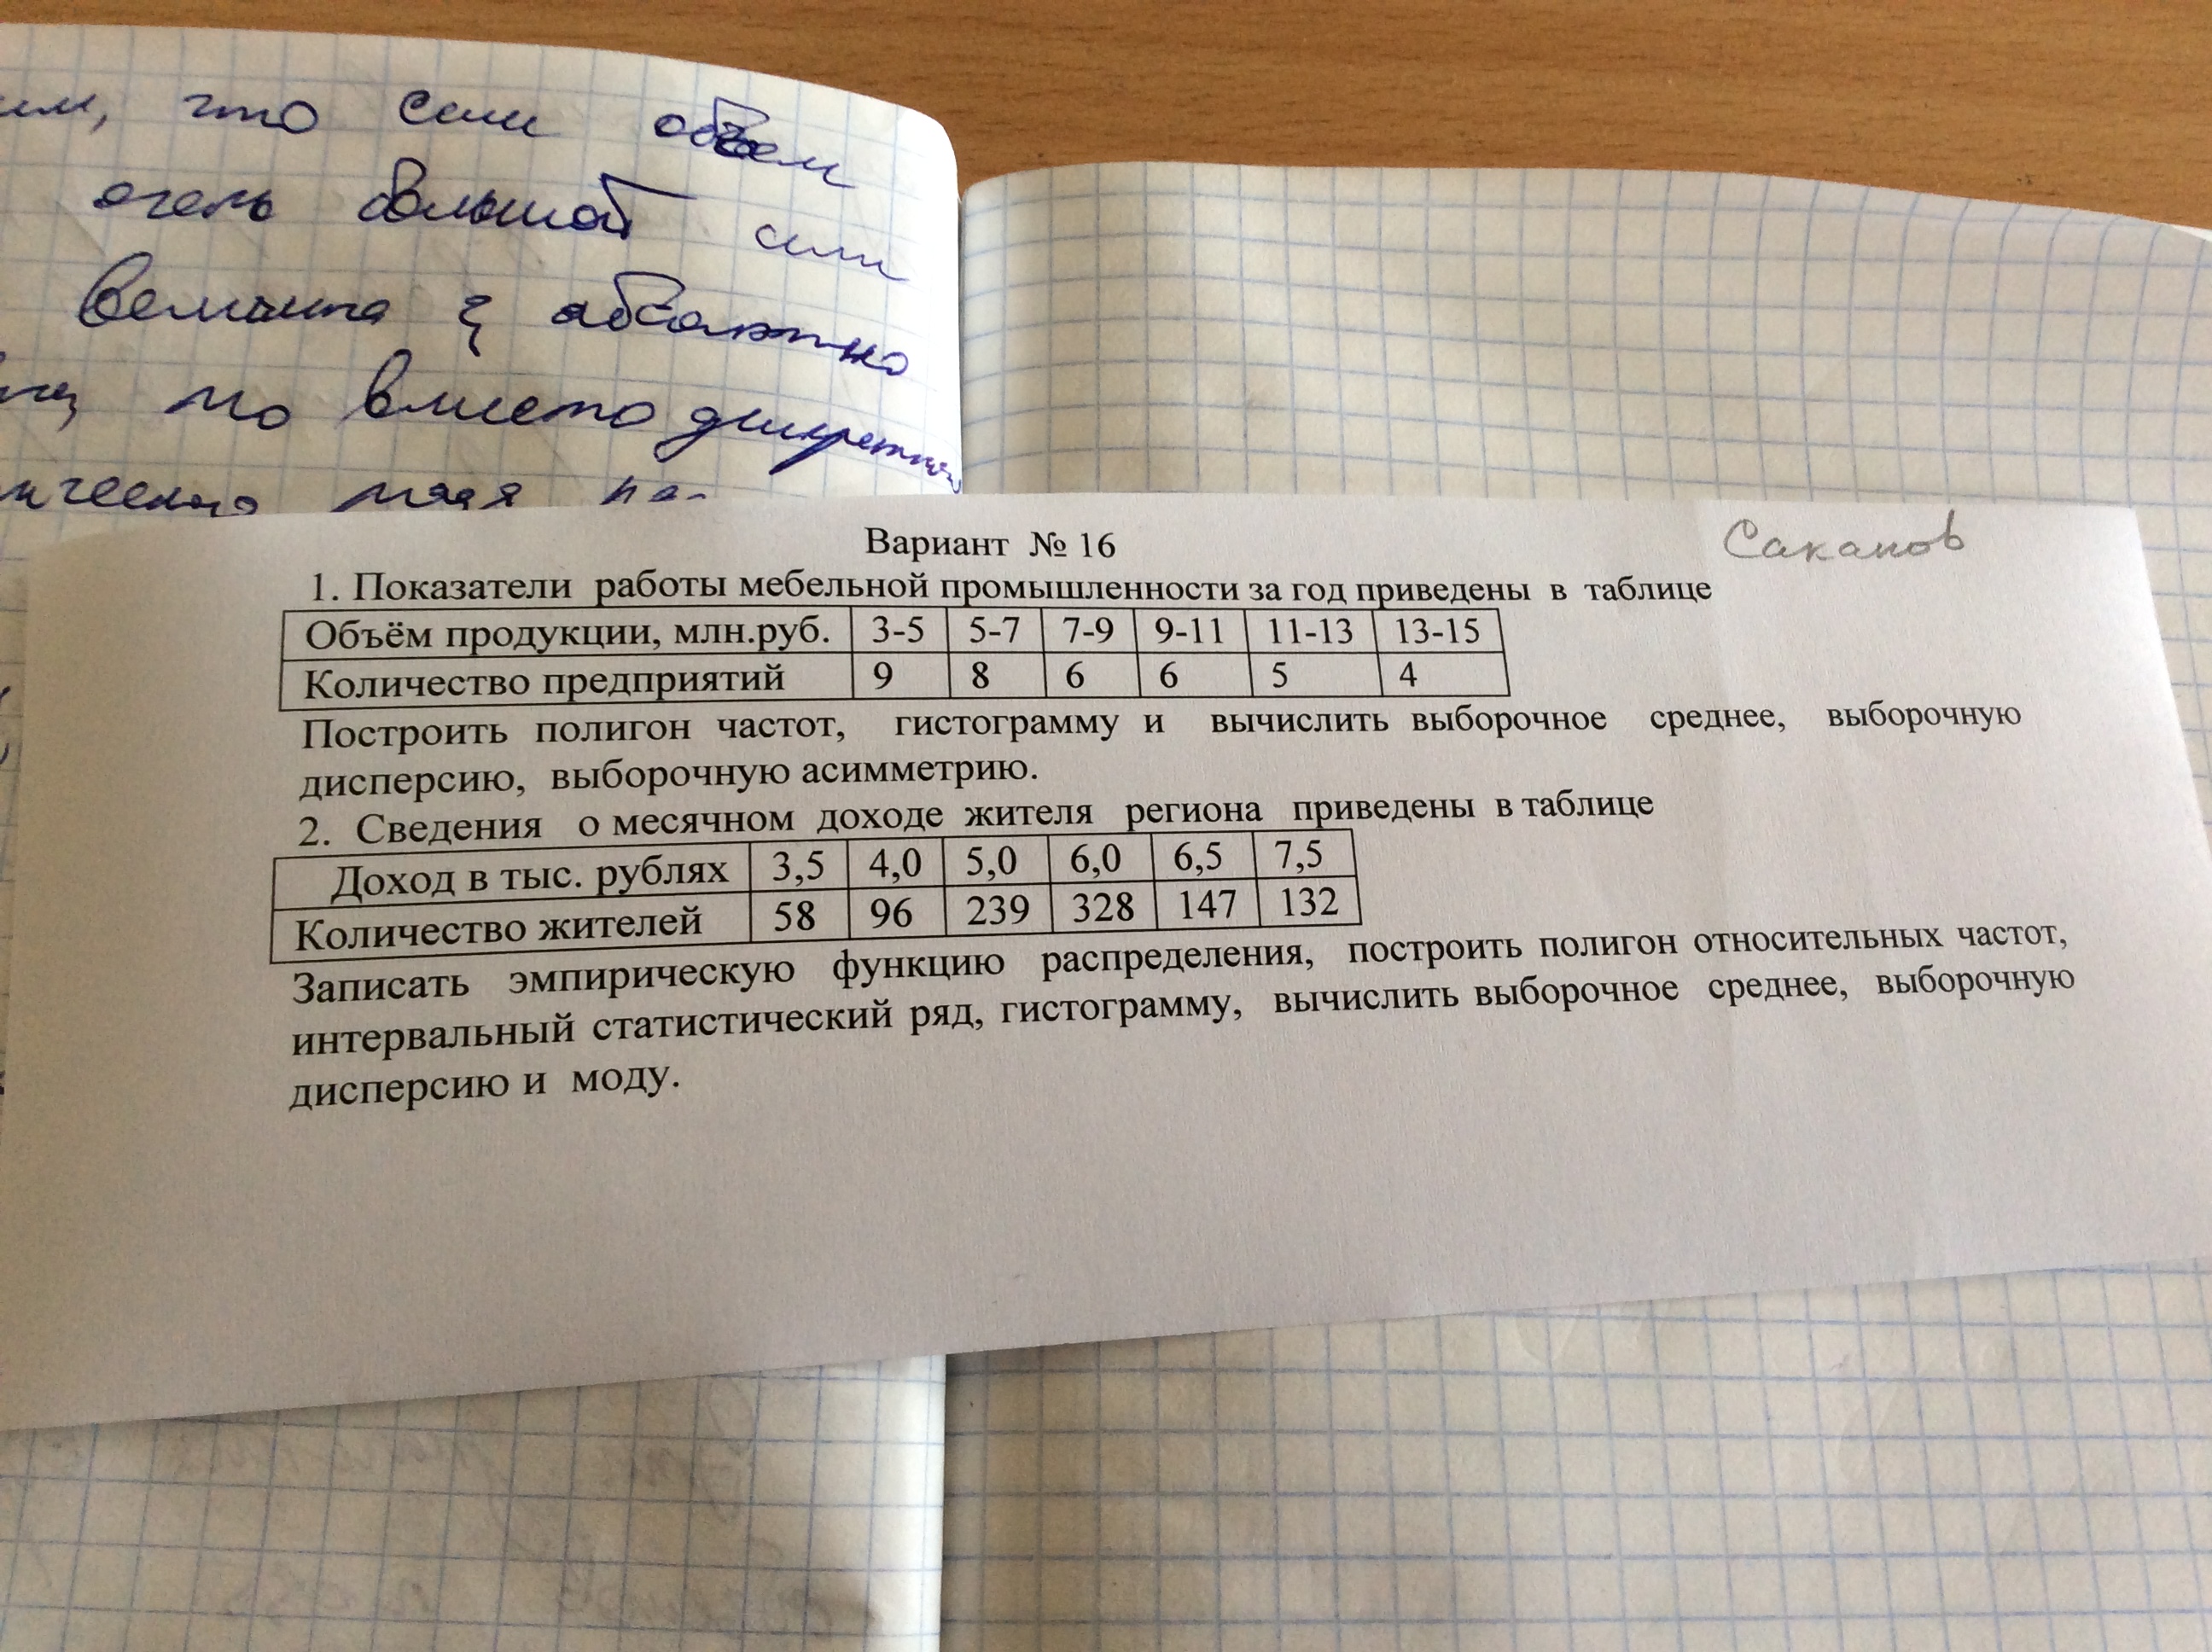 что если объем
очень большой или
величина ξ абсолютно
то вместо
Вариант № 16
Саканов
1. Показатели работы мебельной промышленности за год приведены в таблице
Объём продукции, млн.руб. 3-5 5-7 7-9 9-11 11-13 13-15
Количество предприятий 9 8 6 6 5 4
Построить полигон частот, гистограмму и вычислить выборочное среднее, выборочную
дисперсию, выборочную асимметрию.
2. Сведения о месячном доходе жителя региона приведены в таблице
Доход в тыс. рублях 3,5 4,0 5,0 6,0 6,5 7,5
Количество жителей 58 96 239 328 147 132
Записать эмпирическую функцию распределения, построить полигон относительных частот,
интервальный статистический ряд, гистограмму, вычислить выборочное среднее, выборочную
дисперсию и моду.